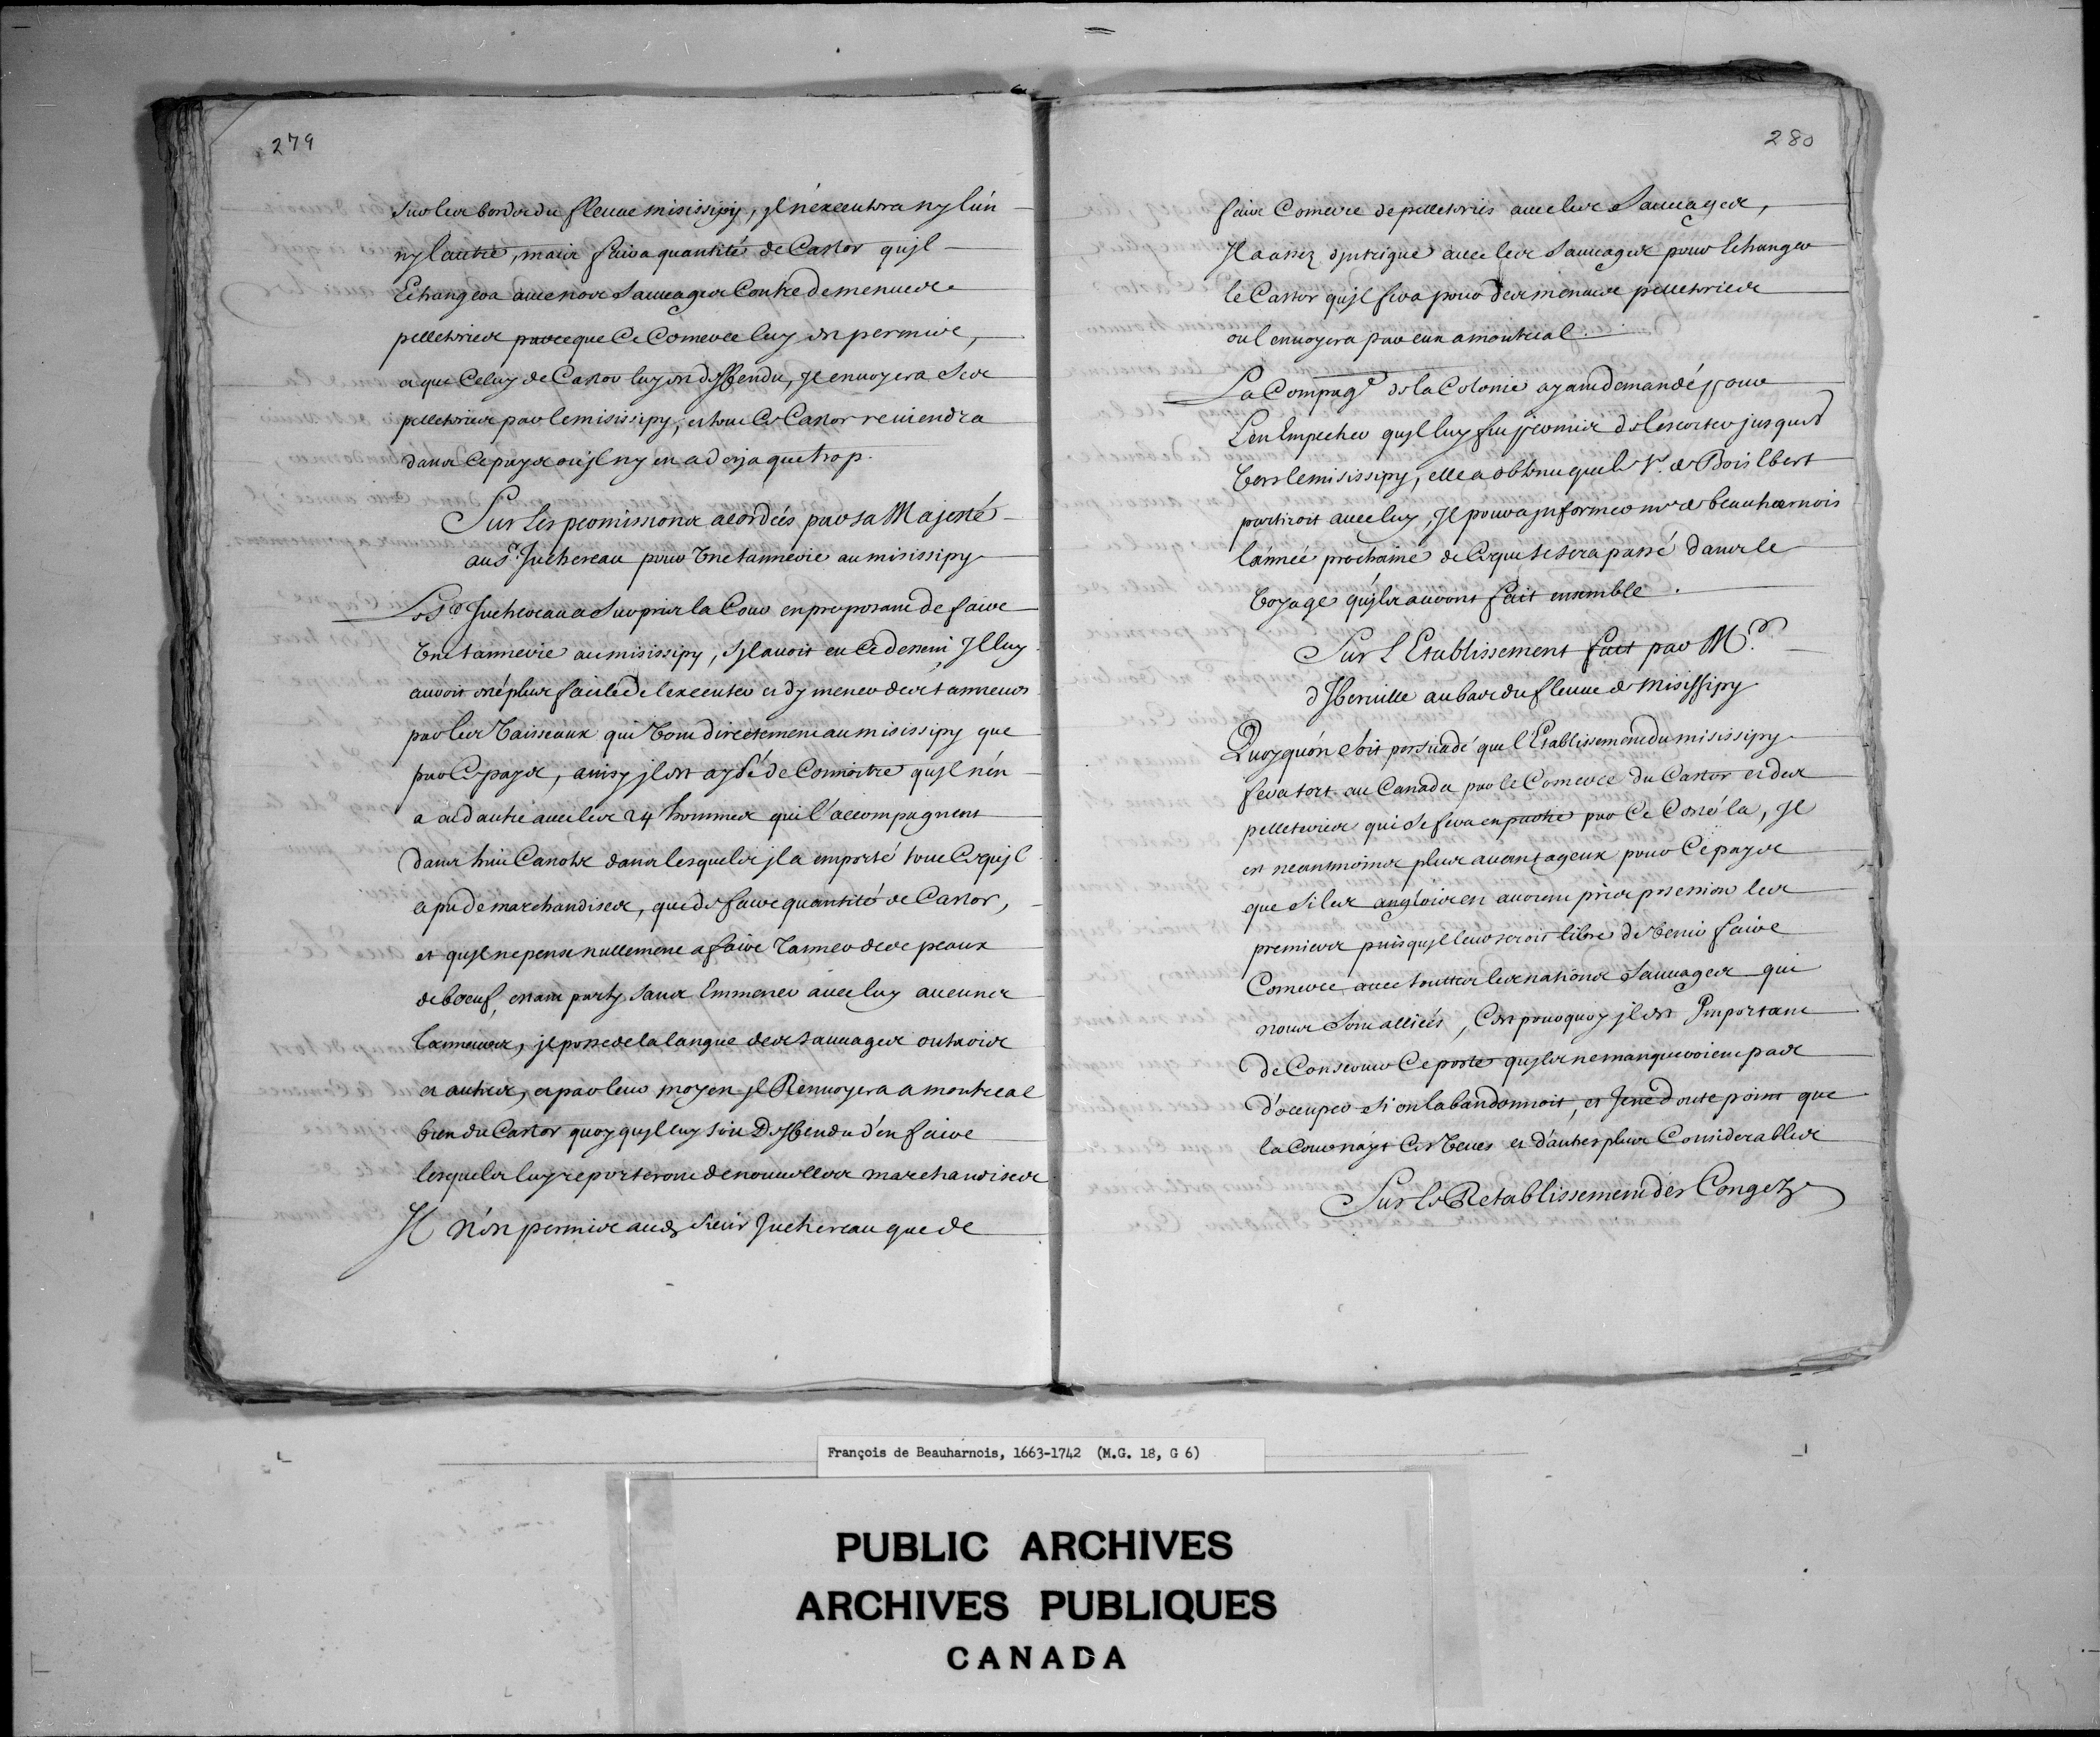 279
sur les bords du fleuve misissipy, jl n'executera ny lún
ny lautre, mais faira quantité de Castor qujl
Echangera avec nos Sauvages Contre de menues
pelletries parceque Ce Comerce luy est permis,
et que Celuy de Castor luy est deffendu, Jl envoyera Ses
pelletries par le misissipy, et tout Ce Castor reviendra
dans Ce pays ou jl ny en a deja que trop.
Sur Les permissions acordeés par sa Majesté
au Sr. Juchereau pour Une tannerie au misissipy
Le Sr. Juchereau a Surpris la Cour en proposant de faire
Une tannerie au misissipy, Sjl avoit eu Ce dessein Jl luy
auroit esté plus facile de l'executer et dy mener des tanneurs
par les Vaisseaux qui Vont directement au misissipy que
par Ce pays, ainsy jl est aysé de Connoitre qujl nén
a aud autre avec les 24 hommes qui l'accompagnent
dans huit Canots dans lesquels jl a emporté tout Ce qujl
a pu de marchandises, que de faire quantité de Castor,
et qujl ne pense nullement a faire Tanner des peaux
de boeuf, estant party sans Emmener avec luy aucuns
Tanneurs, jl possede la langue des Sauvages outaois
et autres, et par leur moyen jl Renvoyera a montreal
bien du Castor quoy qujl luy soit Deffendu d'en faire
lesquels luy reporteront de nouvelles marchandises
Jl n'est permis aud. Sieur Juchereau que de
280
faire Comerce de pelletries avec les Sauvages,
Jl a assez djntrigue avec les Sauvages pour Echanger
le Castor qujl fera pour des menues pelletries
ou l'envoyera par eux a montreal.
La Compage. de la Colonie ayant demandé pour
L'en Empecher qujl luy fut permis de l'escorter jusques
Vers le misissipy, elle a obtenu que le Sr. de Boislbert
partiroit avec luy, Jl pourra jnformer mr de beauharnois
l'année prochaine de Ce qui se sera passé dans le
Voyage qujls auront fait ensemble.
Sur L'Etablissement fait par Mr.
d'Jberville au bas du fleuve de Misissipy
Quoyquón Soit persuadé que l'Etablissement du misissipy
fera tort au Canada par le Comerce du Castor et des
pelletries qui se fera en partie par Ce Costé la, Jl
est neantmoins plus avantageux pour Ce pays
que Si les anglois en avoient pris possession les
premiers puisqujl leur seroit libre de Venir faire
Comerce avec touttes les nations Sauvages qui
nous Sont alliées, C'est pourquoy jl est Jmportant
de Conserver Ce poste qujls ne manqueroient pas
d'occuper si on l'abandonnoit, et Je ne doute point que
la Cour n'ayt Ces Veues et d'autres plus Considerables
Sur Le Retablissement des Congez
François de Beauharnois, 1663-1742 (M.G. 18, G 6)
PUBLIC ARCHIVES
ARCHIVES PUBLIQUES
CANADA